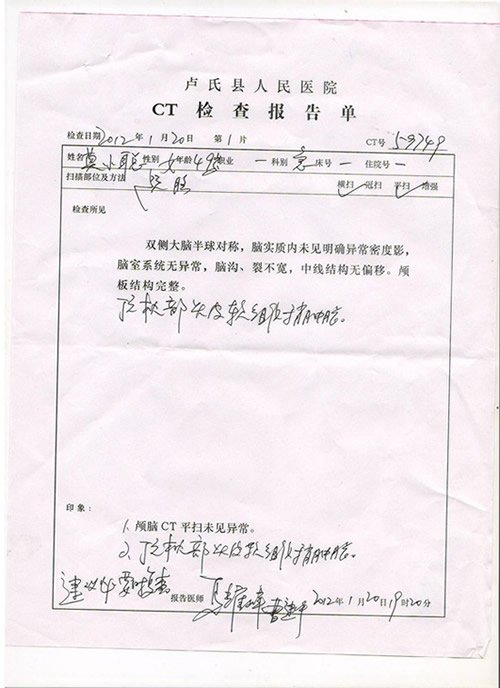 卢氏县人民医院
CT 检查报告单
检查日期 2012年1月20日 第1片 CT号 59749
姓名 莫小聪 性别 女 年龄 49岁 职业 一 科别 急 床号 一 住院号 一
扫描部位及方法 颅脑 横扫 冠扫 平扫 增强
检查所见
双侧大脑半球对称，脑实质内未见明确异常密度影，
脑室系统无异常，脑沟、裂不宽，中线结构无偏移。颅
板结构完整。
顶枕部头皮软组织稍肿胀。
印象：
1、颅脑CT平扫未见异常。
2、顶枕部头皮软组织稍肿胀。
建议必要时复查
报告医师 2012年1月20日19时20分